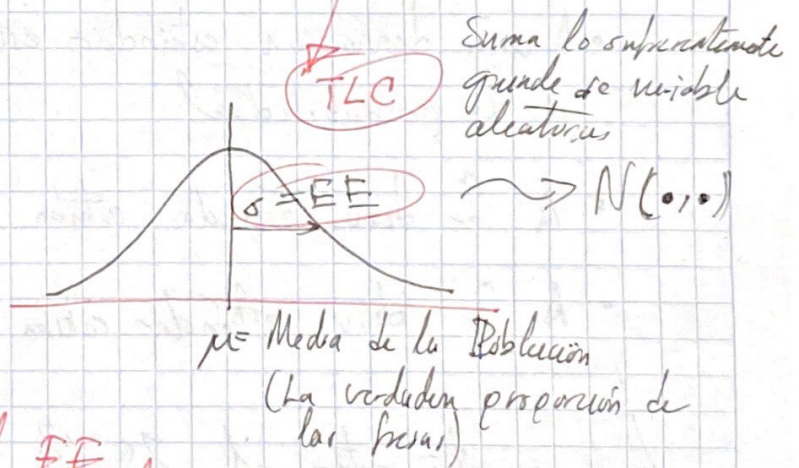 Suma lo suficientemente
grande de variable
aleatorias
TLC
σ = EE
N(•,•)
μ = Media de la Población
(La verdadera proporción de
las fresas)
EE